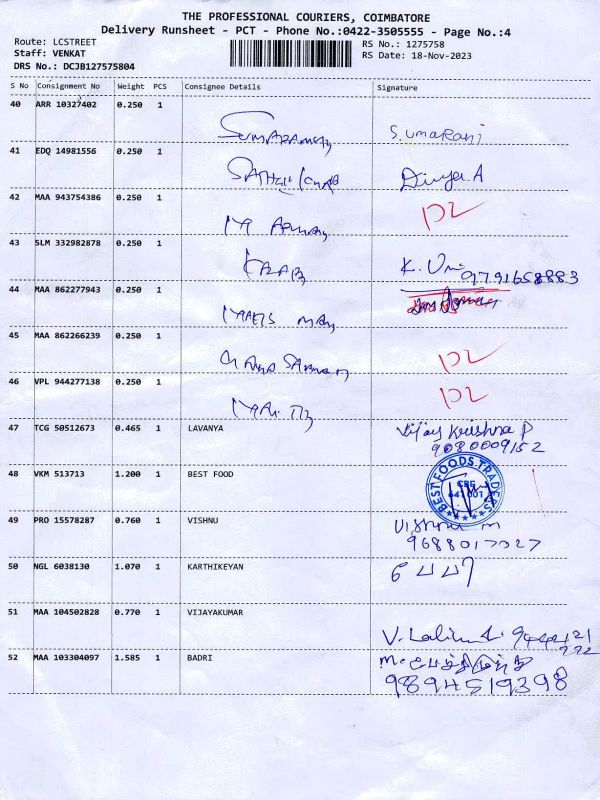 THE PROFESSIONAL COURIERS, COIMBATORE
Delivery Runsheet - PCT - Phone No.:0422-3505555 - Page No.:4
Route: LCSTREET
Staff: VENKAT
DRS No.: DCJB127575804
RS No.: 1275758
RS Date: 18-Nov-2023
S No Consignment No Weight PCS Consignee Details Signature
40 ARR 10327402 0.250 1
S. Umarani
41 EDQ 14981556 0.250 1
Divya.A
42 MAA 943754386 0.250 1
DL
43 SLM 332982878 0.250 1
K. Uni
9791658883
44 MAA 862277943 0.250 1
45 MAA 862266239 0.250 1
DL
46 VPL 944277138 0.250 1
DL
47 TCG 50512673 0.465 1 LAVANYA Vijay Krishna P
9080009152
48 VKM 513713 1.200 1 BEST FOOD
BEST FOODS TRADERS
CBE
641 001
49 PRO 15578287 0.760 1 VISHNU Vishnu m
9688017027
50 NGL 6038130 1.070 1 KARTHIKEYAN
51 MAA 104502828 0.770 1 VIJAYAKUMAR
52 MAA 103304097 1.585 1 BADRI
9894519398